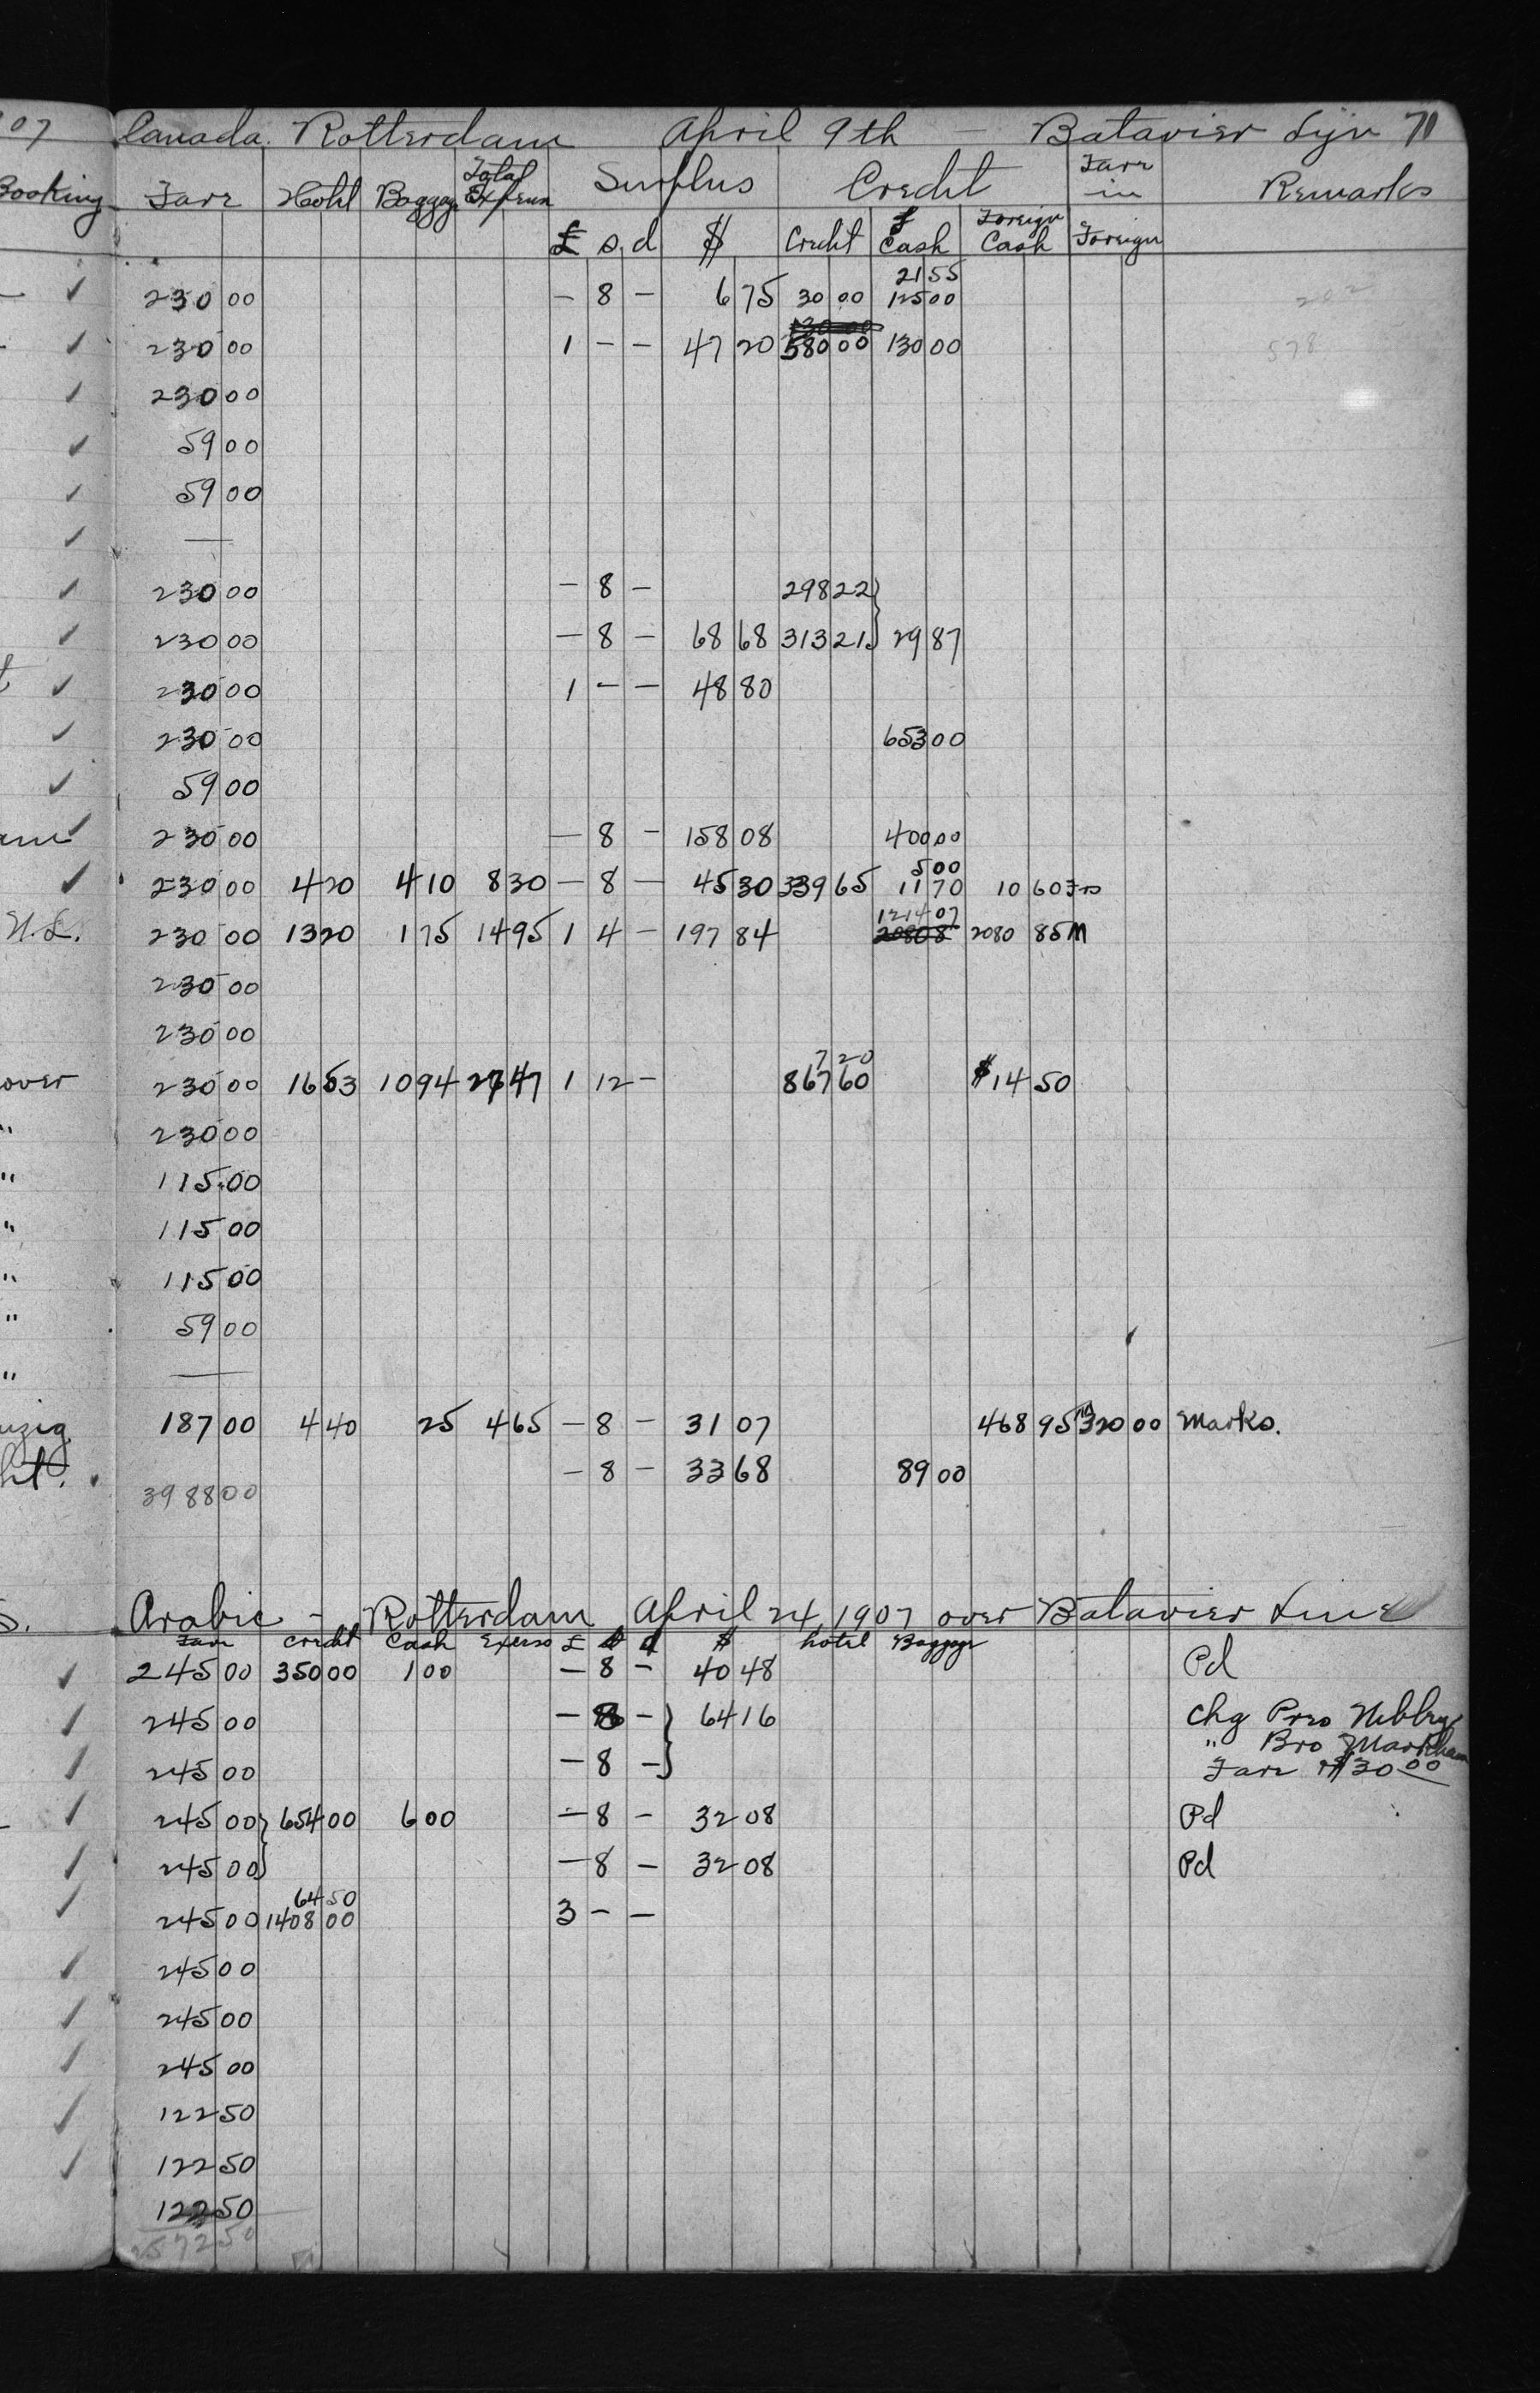 07 Canada. Rotterdam April 9th – Batavier Lijn 71
Booking Fare Hotel Baggage Total Expense Surplus Credit Fare in Remarks
£ s. d $ Credit £ Cash Foreign Cash Foreign
21 55
230 00 – 8 – 6 75 30 00 125 00 202
230 00 1 – – 47 20 580 00 130 00 578
230 00
59 00
59 00
—
230 00 – 8 – 298 22
230 00 – 8 – 68 68 313 21 29 87
230 00 1 – – 48 80
230 00 653 00
59 00
230 00 – 8 – 158 08 400 00
5 00
230 00 4 20 4 10 8 30 – 8 – 45 30 339 65 11 70 10 60
1214 07
N.L. 230 00 13 20 1 75 14 95 1 4 – 197 84 208 08 2080 85 M
230 00
230 00
7 20
over 230 00 16 53 10 94 27 47 1 12 – 867 60 $14 50
" 230 00
" 115.00
" 115 00
" 115 00
" 59 00
" —
187 00 4 40 25 4 65 – 8 – 31 07 468 95 320 00 Marks.
– 8 – 33 68 89 00
3988 00
S. Arabic – Rotterdam April 24 1907 over Batavier Line
Fare credit Cash Expense £ s d $ hotel Baggage
245 00 350 00 1 00 – 8 – 40 48 Pd
245 00 – 8 – 64 16 Chg Pres Nibley
" Bro Markham
245 00 – 8 – Fare $30 00
245 00 654 00 6 00 – 8 – 32 08 Pd
245 00 – 8 – 32 08 Pd
64 50
245 00 1408 00 3 – –
245 00
245 00
245 00
122 50
122 50
122 50
2572 50